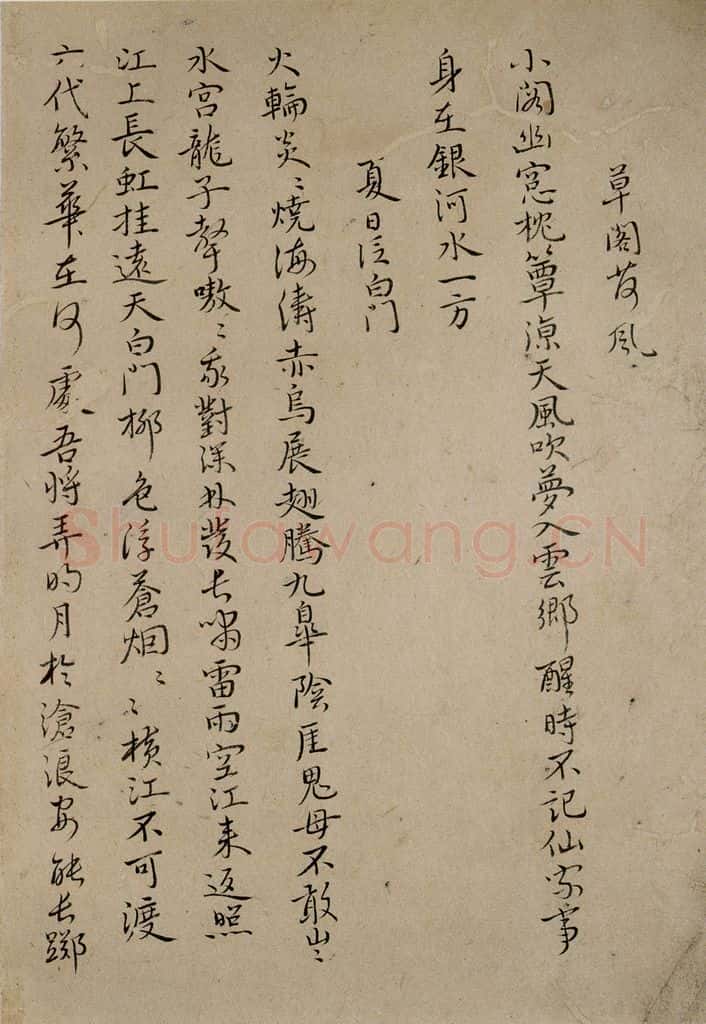 草閣芳風
小閣幽窓枕簟涼天風吹夢入雲鄉醒時不記仙家事
身在銀河水一方
夏日泛白門
火輪炎〻燒海濤赤烏展翅騰九皋陰厓鬼母不敢出〻
水宮龍子聲嗷〻我對深林發長嘯雷雨空江来返照
江上長虹挂遠天白門柳色浮蒼烟〻〻橫江不可渡
六代繁華在何處吾將弄明月於滄浪安能長躑
Shufawang.CN